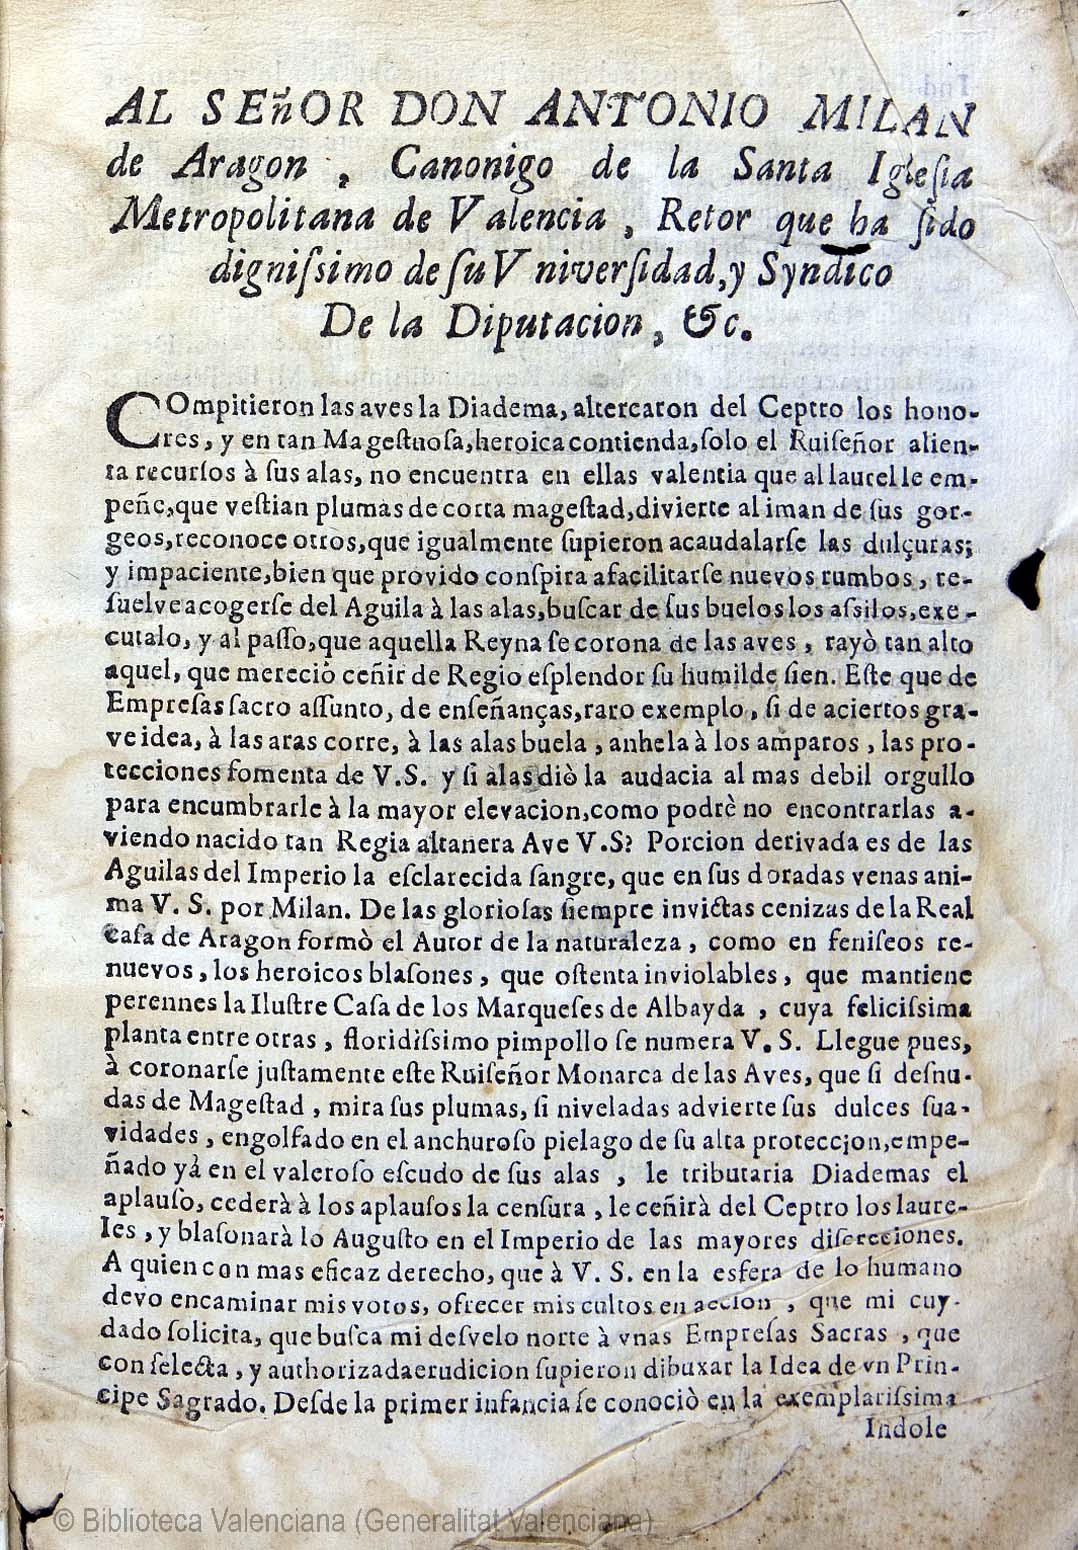 AL SEñOR DON ANTONIO MILAN
de Aragon, Canonigo de la Santa Igleſia
Metropolitana de Valencia, Retor que ha ſido
digniſsimo de ſu Vniverſidad, y Syndico
De la Diputacion, &c.
COmpitieron las aves la Diadema, altercaron del Ceptro los hono-
res, y en tan Mageſtuoſa, heroica contienda, ſolo el Ruiſeñor alien-
ta recurſos à ſus alas, no encuentra en ellas valentia que al laurel le em-
peñe, que veſtian plumas de corta mageſtad, divierte al iman de ſus gor-
geos, reconoce otros, que igualmente ſupieron acaudalarſe las dulçuras;
y impaciente, bien que provido conſpira a facilitarſe nuevos rumbos, re-
ſuelve acogerſe del Aguila à las alas, buſcar de ſus buelos los aſsilos, exe-
cutalo, y al paſſo, que aquella Reyna ſe corona de las aves, rayò tan alto
aquel, que mereciò ceñir de Regio eſplendor ſu humilde ſien. Eſte que de
Empreſas ſacro aſſunto, de enſeñanças, raro exemplo, ſi de aciertos gra-
ve idea, à las aras corre, à las alas buela, anhela à los amparos, las pro-
tecciones fomenta de V.S. y ſi alas diò la audacia al mas debil orgullo
para encumbrarle à la mayor elevacion, como podrè no encontrarlas a-
viendo nacido tan Regia altanera Ave V.S? Porcion derivada es de las
Aguilas del Imperio la eſclarecida ſangre, que en ſus doradas venas ani-
ma V. S. por Milan. De las glorioſas ſiempre invictas cenizas de la Real
Caſa de Aragon formò el Autor de la naturaleza, como en feniſeos re-
nuevos, los heroicos blaſones, que oſtenta inviolables, que mantiene
perennes la Iluſtre Caſa de los Marqueſes de Albayda, cuya feliciſsima
planta entre otras, floridiſsimo pimpollo ſe numera V. S. Llegue pues,
à coronarſe juſtamente eſte Ruiſeñor Monarca de las Aves, que ſi deſnu-
das de Mageſtad, mira ſus plumas, ſi niveladas advierte ſus dulces ſua-
vidades, engolfado en el anchuroſo pielago de ſu alta proteccion, empe-
ñado yà en el valeroſo eſcudo de ſus alas, le tributaria Diademas el
aplauſo, cederà à los aplauſos la cenſura, le ceñirà del Ceptro los laure-
les, y blaſonarà lo Auguſto en el Imperio de las mayores diſcreciones.
A quien con mas eficaz derecho, que à V. S. en la esfera de lo humano
devo encaminar mis votos, ofrecer mis cultos en accion, que mi cuy-
dado ſolicita, que buſca mi deſvelo norte à vnas Empreſas Sacras, que
con ſelecta, y authorizada erudicion ſupieron dibuxar la Idea de vn Prin-
cipe Sagrado. Deſde la primer infancia ſe conociò en la exemplariſsima
Indole
© Biblioteca Valenciana (Generalitat Valenciana)